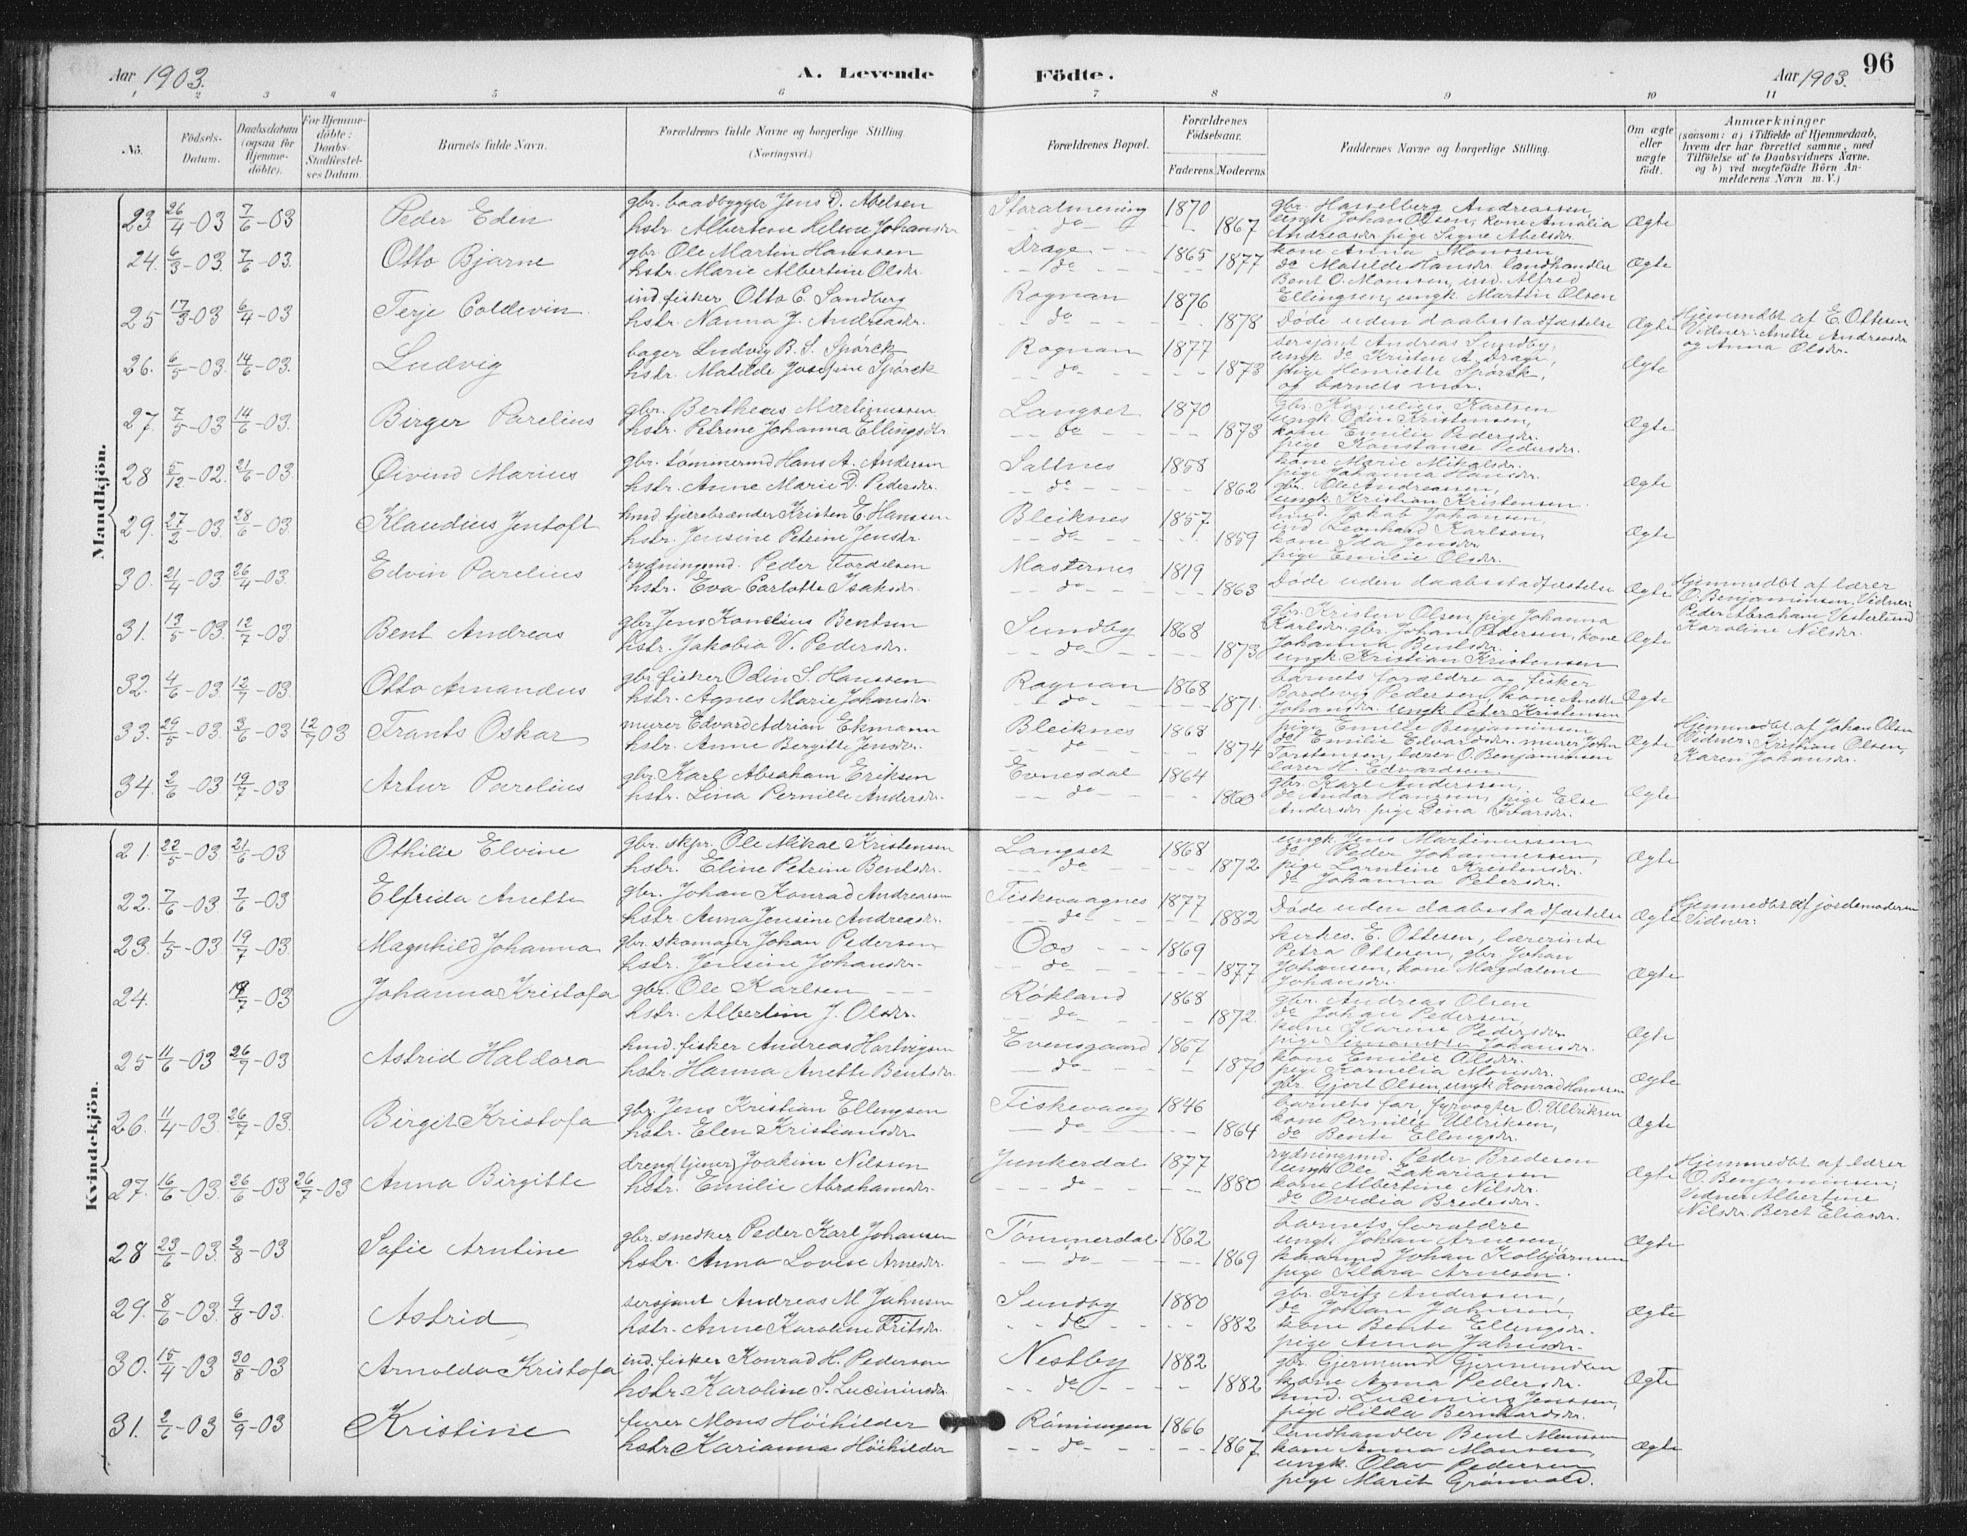 Aar 1903.
A. Levende Födte.
Aar 1903.
96
1 2 3 4 5 6 7 8 9 10 11
No.
Födsels-Datum.
Daabsdatum (ogsaa for Hjemme-döbte).
For Hjemme-döbte: Daabs-Stadfæstel-ses Datum.
Barnets fulde Navn.
Forældrenes fulde Navne og borgerlige Stilling. (Næringsvei.)
Forældrenes Bopæl.
Forældrenes Födselsaar.
Faderens. Moderens.
Faddernes Navne og borgerlige Stilling.
Om ægte eller uægte födt.
Anmærkninger (saasom: a) i Tilfælde af Hjemmedaab, hvem der har forrettet samme, med Tilföielse af to Daabsvidners Navne. og b) ved uægtefödte Börn An-melderens Navn m. V.)
Mandkjön.
23. 26/4-03 7/6-03 Peder Eden gbr. baadbygger Jens D. Abelsen Storalmening 1870 gbr. Hasselberg Andreassen,
hstr. Albertine Helene Johansdr. do 1867 ungk. Johan Olsen, kone Amalia Ægte
Andreasdr. pige Signe Abelsdr.
24. 6/3-03. 7/6-03. Otto Bjarne gbr. Ole Martin Hanssen Drage 1865 kone Anna Monssen
hstr. Marie Albertine Olsdr. do 1877 do Matilde Hansdr. landhandler Ægte
Bent O. Monssen, ind. Alfred
25 17/3-03 6/4-03 Terje Coldevin. ind. fisker Otto E. Sandberg Rognan 1876 Ellingsen, ungk. Martin Olsen
hstr. Nanna J. Andreasdr. do 1878 Døde uden daabsstadfæstelse Ægte Hjemmedbt af E. Ottesen Vidner: Anette Andreasdr og Anna Olsdr.
26. 6/5-03. 14/6-03. Ludvig bager Ludvig B. S. Spørck Rognan 1877 sersjant Andreas Sundby,
hstr. Matilde Josefine Spørck do 1873 ungk do Kristen A. Drage, Ægte
pige Henriette Spørck,
og barnets mor.
27. 7/5-03 14/6-03. Birger Parelius gbr. Bertheus Martinussen Langset 1870 gbr. Kornelius Karlsen
hstr. Petrine Johanna Ellingsdr. do 1873 ungk Odin Kristensen, Ægte
kone Emilie Pedersdr.
pige Konstance Pedersdr.
28 5/12-02. 21/6-03. Øivind Marius gbr. tømmermd Hans A. Andersen Saltnes 1858 kone Marie Mikalsdr.
hstr. Anne Marie D. Pedersdr. do 1862 pige Johanna Hansdr. Ægte
gbr. Ole Andreassen,
ungk. Kristian Kristensen.
29. 27/2-03. 28/6-03. Klaudius Jentoft hmd tjærebrænder Kristen E. Hanssen Bleiknes 1857 hmd. Jakob Johansen,
hstr. Jensine Petrine Jensdr. do 1859 ind Leonhard Karlsen, Ægte
kone Ida Jensdr.
pige Emilie Olsdr.
30. 21/4-03 26/4-03. Edvin Parelius rydningsmd. Peder Tordelsen Masternes 1819
hstr. Eva Carlotte Isaksdr. do 1863 Døde uden daabsstadfæstelse Ægte Hjemmedbt af lærer O. Benjaminsen, Vidner: Peder Abraham Vesterlund Karoline Nilsdr.
31. 13/5-03. 12/7-03. Bent Andreas gbr. Jens Konelius Bentsen Sundby 1868 gbr. Kristen Olsen, pige Johanna
hstr. Jakobia V. Pedersdr. do 1873 Karlsdr. gbr. Johan Pedersen, kone Ægte
Johanna Bentsdr.
ungk. Kristian Kristensen
32. 4/6-03. 12/7-03. Otto Amandus gbr. fisker Odin S. Hanssen Rognan 1868 barnets forældre og fisker
hstr. Agnes Marie Johansdr. do 1871. Bardevig Pedersen, kone Anette Ægte
Johansdr. ungk Peter Kristensen
33. 29/5-03. 3/6-03 12/7 03 Frants Oskar murer Edvard Adrian Ekmann Bleiknes 1868 pige Emilie Benjaminsen
hstr. Anne Bergitte Jensdr. do 1874 do Emilie Edvardsdr. murer John Ægte Hjemmedbt af Johan Olsen Vidner: Kristian Olsen, Karen Johansdr.
Torstensen, lærer O. Benjaminsen
lærer H. Edvardsen.
34. 2/6-03 19/7-03 Artur Parelius gbr. Karl Abraham Eriksen Evnesdal 1864 gbr. Karl Anderssen,
hstr. Lina Pernille Andersdr. do 1860 do Andor Hanssen, pige Else Ægte
Andersdr. pige Dina Ivarsdr.
Kvindekjön.
21. 22/5-03 21/6-03 Othilie Elvine gbr. skpr. Ole Mikal Kristensen Langset 1868 ungk Jens Martinussen
hstr. Eline Petrine Bentsdr. do 1872 do Peder Johannessen, Ægte
pige Larntine Kristensdr.
do Johanna Petersdr.
22. 7/6-03. 7/6-03. Elfrida Anette gbr. Johan Konrad Andreassen Fiskevaagnes 1877
hstr. Anna Jensine Andreasdr. do 1882 Døde uden daabsstadfæstelse Ægte Hjemmedbt af jordemoderen Vidner:
23. 1/5-03. 19/7-03. Magnhild Johanna gbr. skomager Johan Pedersen Oos 1869 kirkes. E. Ottesen, lærerinde
hstr. Jensine Johansdr. do 1877 Petra Ottesen, gbr. Johan Ægte
Johansen, kone Magdalene
Johansdr.
24. 19/7-03 Johanna Kristofa gbr. Ole Karlsen Røkland 1868 gbr. Andreas Olsen
hstr. Albertine J. Olsdr. do 1872. do Johan Pedersen, Ægte
kone Karine Pedersdr.
pige Johansdr.
25 11/6-03 26/7-03 Astrid Haldora hmd. fisker Andreas Hartvigsen Evensgaard 1867 kone Emilie Olsdr.
hstr. Hanna Anette Bentsdr. do 1870 pige Kornelia Monsdr. Ægte
gbr. Gjert Olsen, ungk. Konrad Hanssen
26. 11/4-03. 26/7-03. Birgit Kristofa gbr. Jens Kristian Ellingsen Fiskevaag 1846 barnets far, fyrvogter O. Ullriksen
hstr. Elen Kristiansdr. do 1864 kone Pernille Ullriksen, Ægte
do Bente Ellingsdr.
27. 16/6-03. 26/6-03 26/7-03 Anna Birgitte dreng (tjener) Joakim Nilssen Junkerdal 1877 rydningsmd. Peder Bredesen
hstr. Emilie Abrahamsdr. do 1880 ungk Ole Zakariassen Ægte Hjemmedbt af lærer O. Benjaminsen; Vidner Albertine Nilsdr. Beret Eliasdr.
kone Albertine Nilsdr.
do Ovedia Bredesdr.
28 23/6-03. 2/8-03 Sofie Arntine gbr. snedker Peder Karl Johansen Tømmerdal 1862 barnets forældre
hstr. Anna Lovise Arnesdr. do 1869 ungk Johan Arnesen, Ægte
kaarmd Johan Kolbjørnsen
pige Klara Arnesen.
29. 8/6-03. 9/8-03. Astrid sersjant Andreas M Jahnsen Sundby 1880 gbr. Fritz Anderssen,
hstr. Anne Karoline Fritsdr. do 1882 do Johan Jahnsen, Ægte
kone Bente Ellingsdr.
pige Anna Jahnsdr.
30. 15/4-03 30/8-03 Arnolda Kristofa ind. fisker Konrad H. Pedersen Nestby 1882 gbr. Gjermund Gjermundsen
hstr. Karoline S. Luciniusdr. do 1882 kone Anna Pedersdr. Ægte
hmd. Lucinius Jenssen,
pige Hilda Bernhardsdr.
31. 2/6-03 6/9-03 Kristine furer Mons Höihilder Rönningen 1866 landhandler Bent Monssen
hstr Karianna Höihilder do 1867 kone Anna Monssen, Ægte
ungk. Olav Pedersen
pige Marit Grønvold.